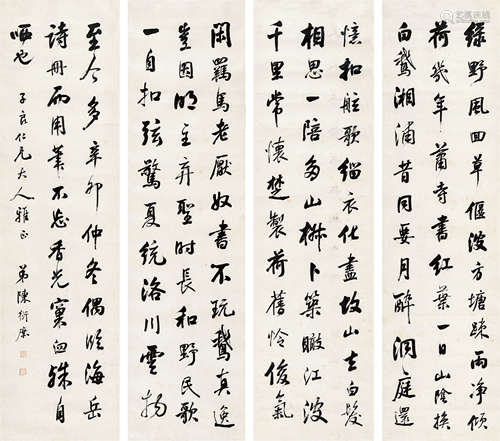 綠野風回草偃波方塘疎雨净傾
荷幾年蕭寺書紅葉一日山陰換
白鵝湘浦昔同要月醉洞庭還
憶扣舷歌緇衣化盡故山去白髮
相思一陪多山椒卜築瞰江波
千里常懷楚製荷舊怜俊氣
閑羈馬老厭奴書不玩鵝真逸
豈因明主弃聖時長和野民歌
一自扣弦驚夏統洛川雲物
至今多辛卯仲冬偶臨海岳
詩册而用筆不忘香光窠臼殊自
哂也 子良仁兄大人雅正 弟陳衍庶